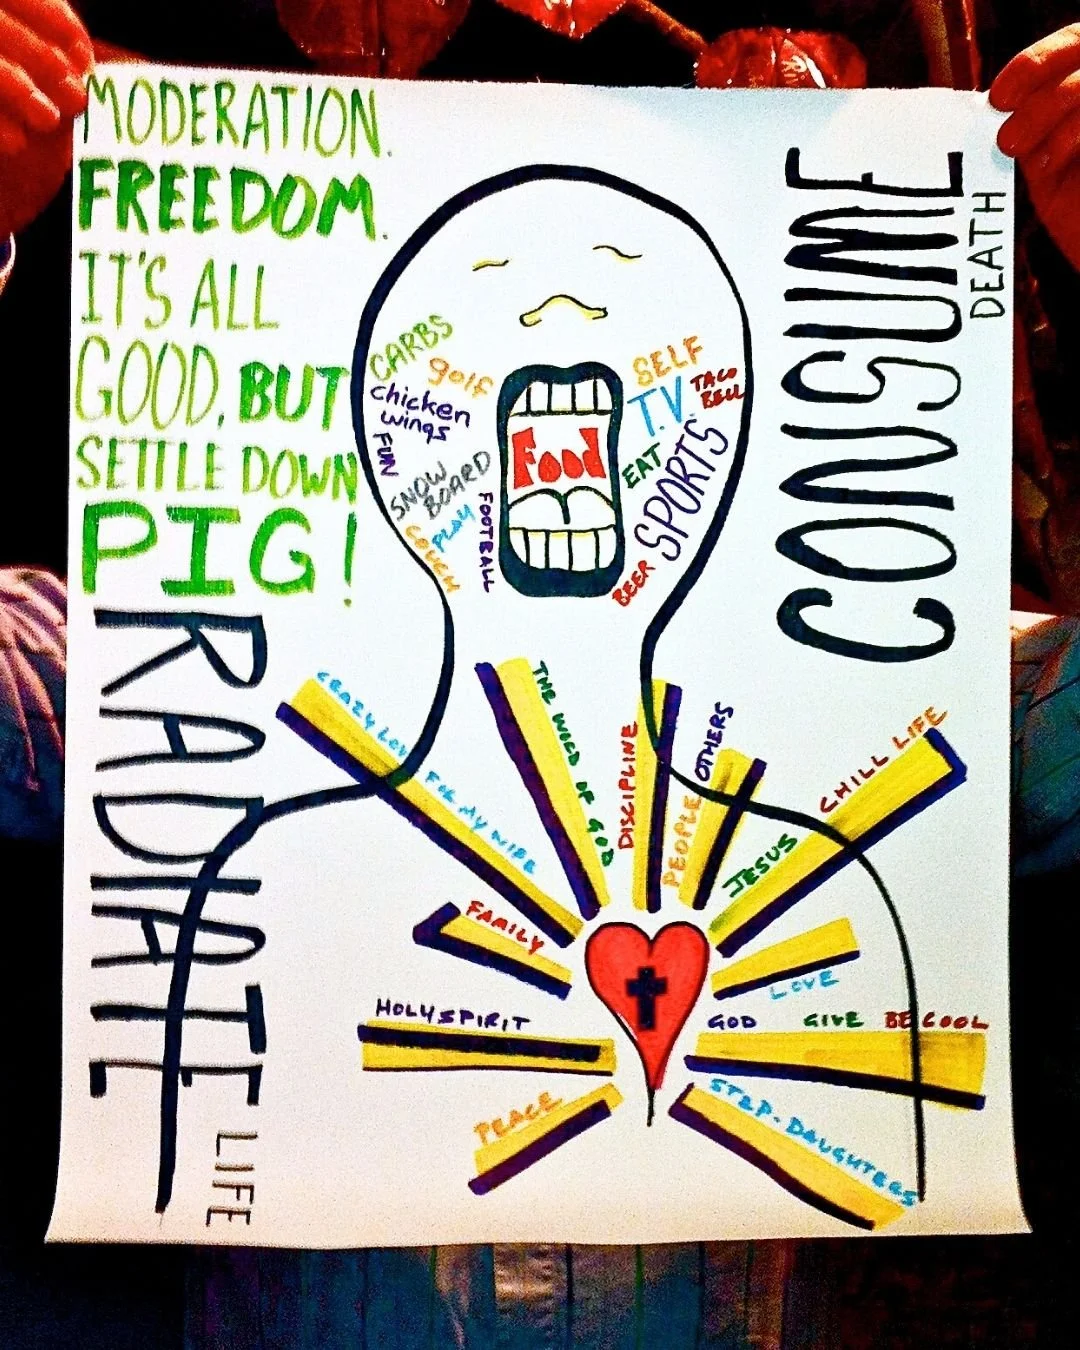 MODERATION.
FREEDOM.
IT'S ALL
GOOD, BUT
SETTLE DOWN
PIG!
CONSUME
DEATH
CARBS
golf
chicken
wings
FUN
SNOW
BOARD
PLAY
COUCH
FOOTBALL
Food
SELF
T.V.
TACO
BELL
EAT
SPORTS
BEER
RADIATE
LIFE
CRAZY LOVE FOR MY WIFE
THE WORD OF GOD
DISCIPLINE
PEOPLE
OTHERS
JESUS
CHILL LIFE
FAMILY
LOVE
HOLY SPIRIT
GOD GIVE BE COOL
PEACE
STEP-DAUGHTERS